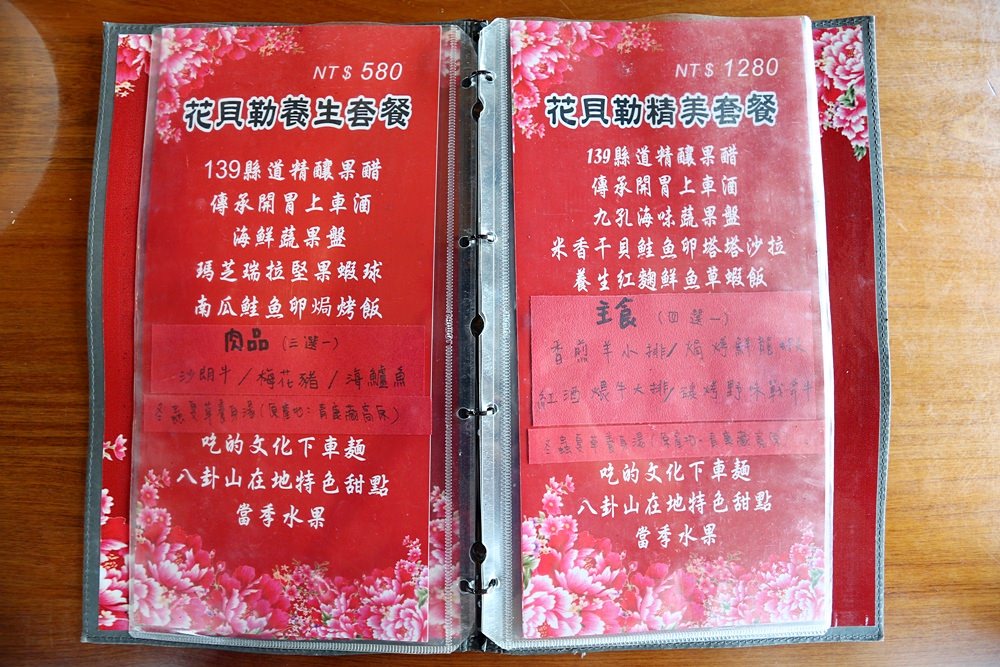 NT$ 580
花貝勒養生套餐
139縣道精釀果醋
傳承開胃上車酒
海鮮蔬果盤
瑪芝瑞拉堅果蝦球
南瓜鮭魚卵焗烤飯
肉品(三選一)
沙朗牛/梅花豬/海鱸魚
冬蟲夏草養身湯(原產地:青康藏高原)
吃的文化下車麵
八卦山在地特色甜點
當季水果
NT$ 1280
花貝勒精美套餐
139縣道精釀果醋
傳承開胃上車酒
九孔海味蔬果盤
米香干貝鮭魚卵塔塔沙拉
養生紅麴鮮魚草蝦飯
主食(四選一)
香煎羊小排/焗烤鮮龍蝦
紅酒煨牛大排/碳烤野味戰斧牛
冬蟲夏草養身湯(原產地:青康藏高原)
吃的文化下車麵
八卦山在地特色甜點
當季水果